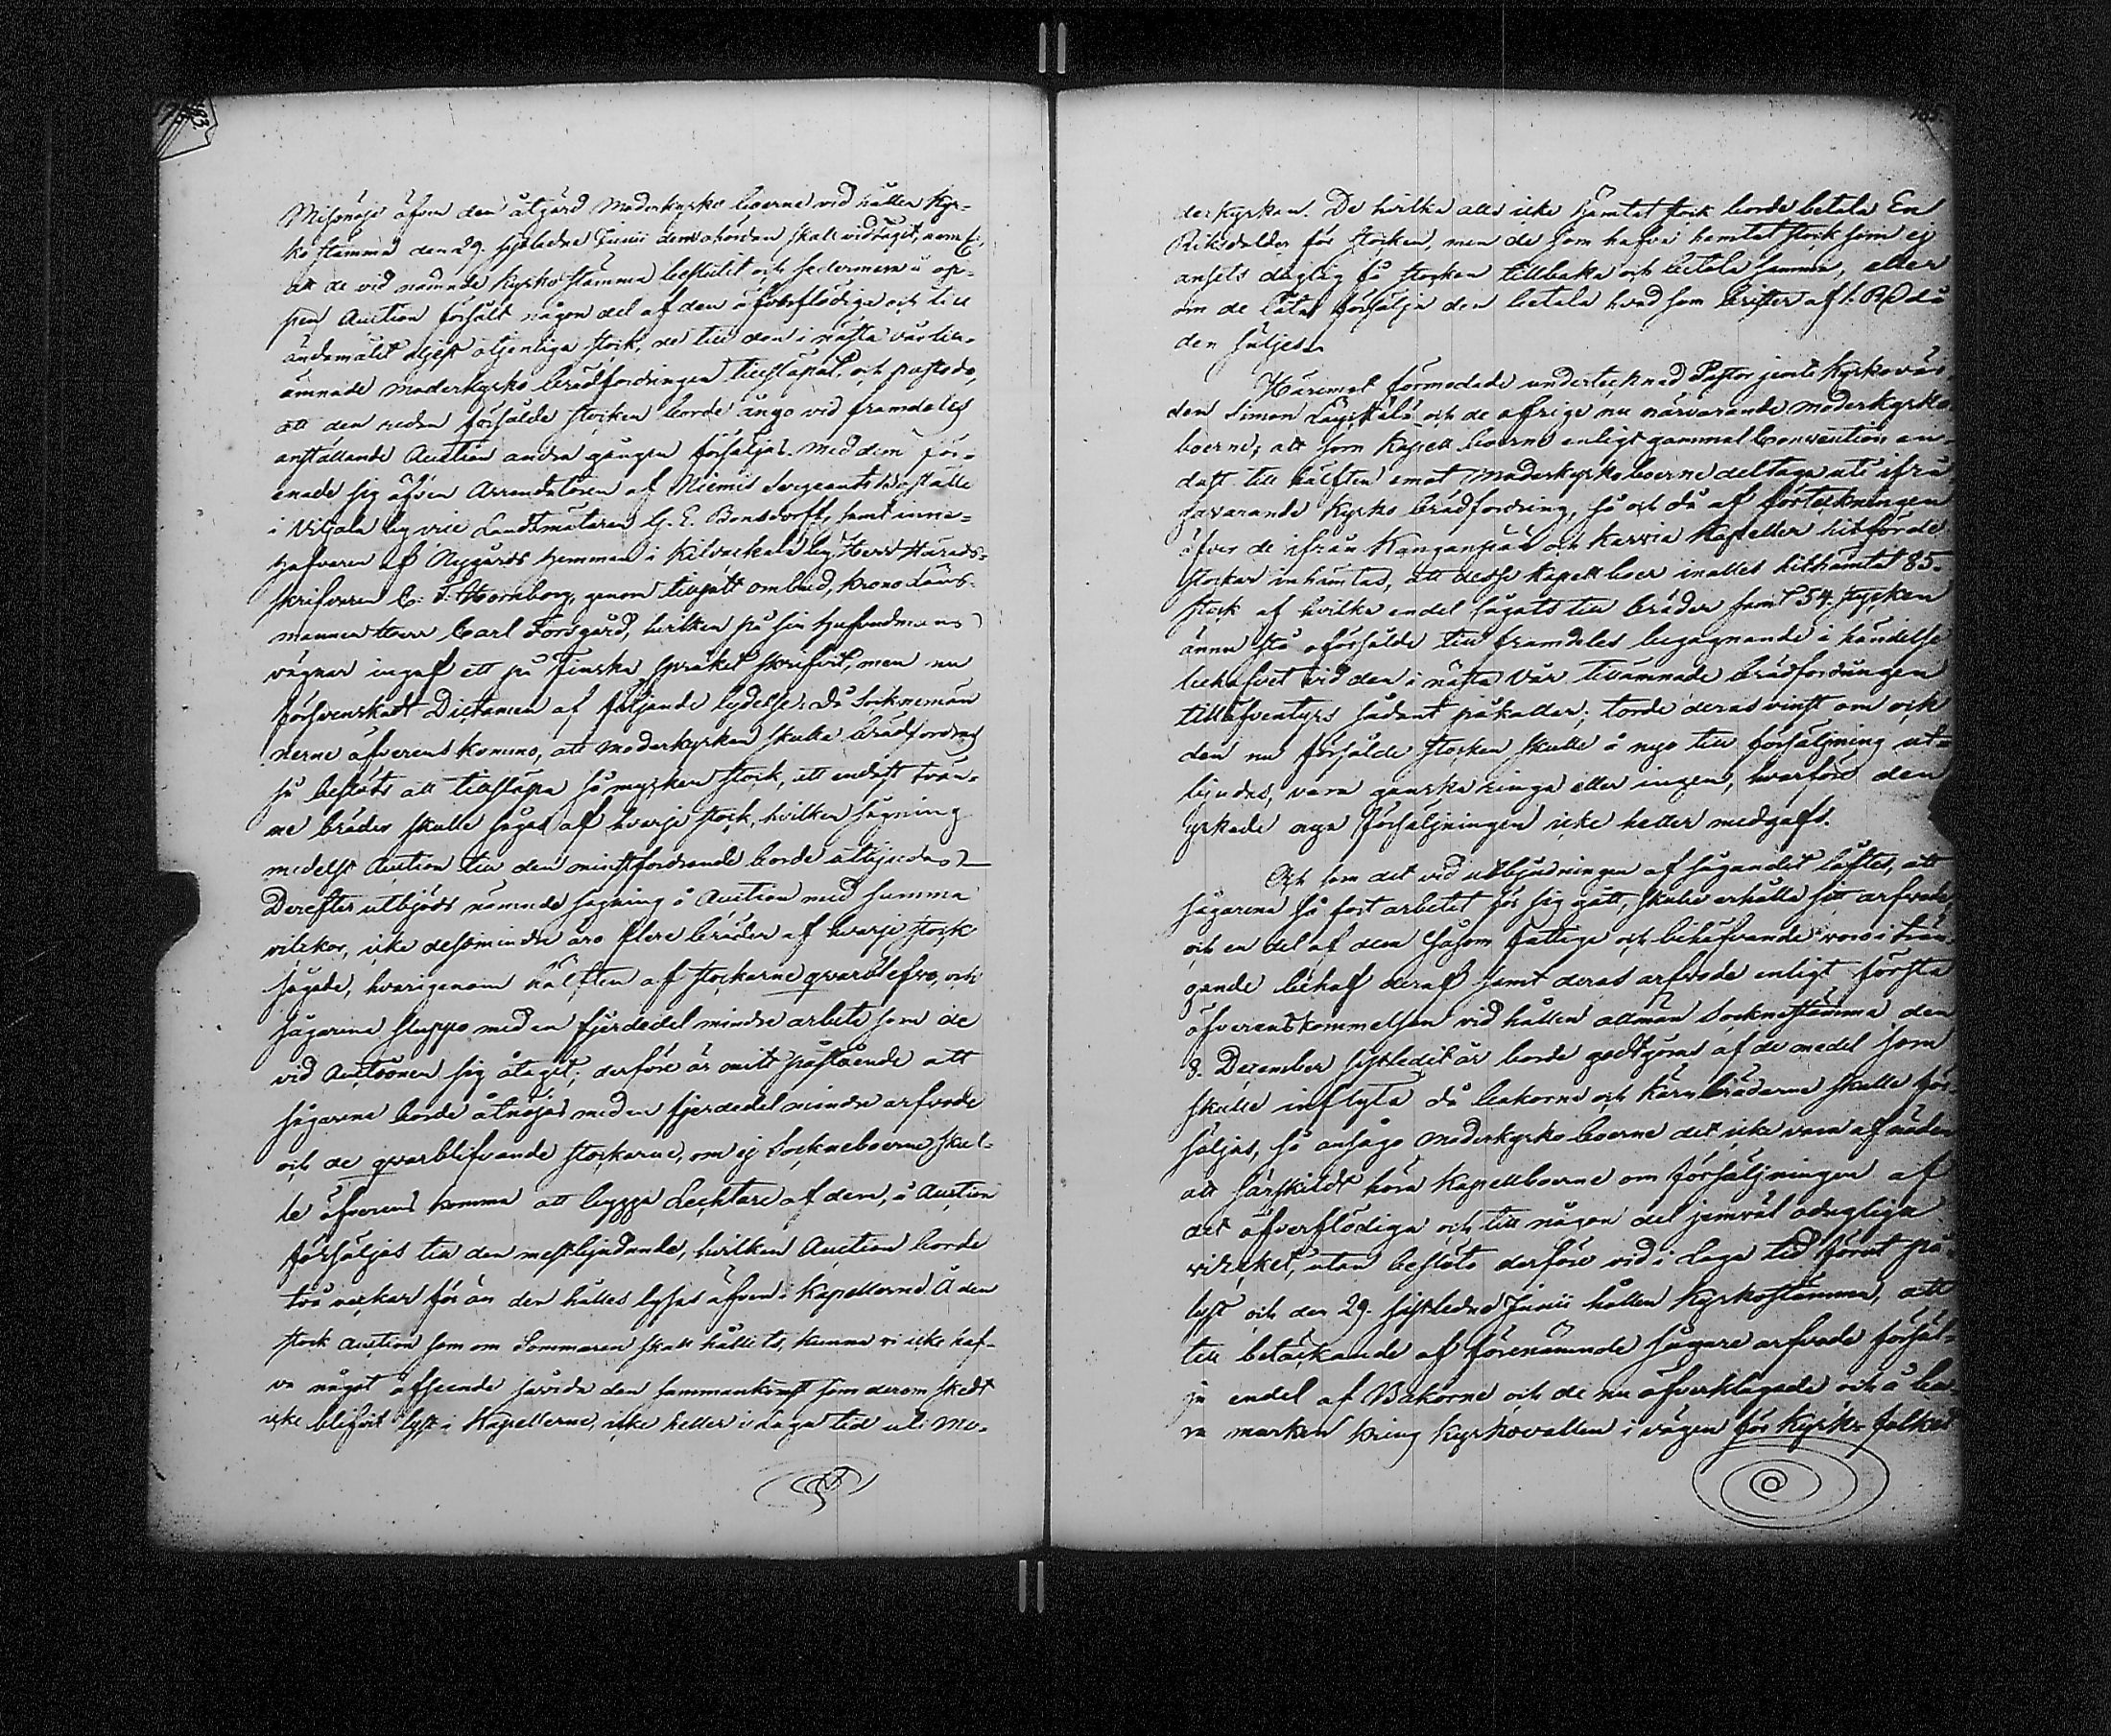 Missnöje öfver den åtgärd Moderkyrko boerne vid hållen Kyr-
ko stämma den 29. sistledne Junii dem ohörden skall vidtagit, nem.
att de vid nämnde Kyrko stämma beslutit och sedermera å op-
pen Auction försålt någon del af den öfverflödiga och till
ändamålet eljest otjenliga stock, de till den i nästa vår till-
ämnade Moderkyrko brädfodringen tillsläpat, och påstodo,
att den redan försålde stocken borde ånyo vid framdeles
anställande Auction andra gången försäljas. Med dem för-
enade sig äfven Arrendatoren af Niemis Sergeants boställe
i Viljala by vice Landtmätaren G. E. Bonsdorff, samt inne-
hafvaren af Nygårds hemman i Kilvackala by Herr Härads-
skrifvaren C. F. Thornborg, genom tilsatt ombud, Krono Läns-
mannen Herr Carl Forsgård, hvilken på sin hufvudmans
vägnar ingaf ett på Finska språket skrifvit, men nu
försvenskadt Dictamen af följande lydelse: Då Sockneman
nerne öfverens kommo, att Moderkyrkan skulle brädfodras
så beslöts att tillsläpa så mycken stock, att endast tvän-
ne bräder skulle sågas af hvarje stock, hvilken sågning
medelst Auction till den minstfordrande borde utbjudas
Derefter utbjöds nämnde sågning å Auction med samma
vilckor, icke dessmindre äro flere bräder af hvarje stock
sågade, hvarigenom hälften af stockarne qvarblefvo, och
sågarena sluppo med en fjerdedel mindre arbete som de
vid Auctionen sig åtagit; derföre är mitt påstående att
sågarena borde åtnöjas med en fjerdedel mindre arfvode
och de qvarblifvande stockarne, om ej Sockneboerne skul-
le öfverens komma att bygga Lecktare af dem, å Auction
försäljas till den mestbjudande, hvilken Auction borde
två veckor för än den hålles lysas äfven i Kapellerne. Å den
stock auction som om Sommaren skall hållits, kunna vi icke haf-
va något afseende såvida den sammankomst som derom skedt
icke blifvit lyst i Kapellerne, icke heller i laga tid uti Mo-
derkyrkan. De hvilka alls icke hämtat stock borde betala En
Riksdaler för stocken, men de som hafva hemtat stock som ej
ansets duglig få stocken tillbaka och betala samma, eller
om de låta försälja den betala hvad som brister af 1. Rd då
den säljes.
Häremot förmodade undertecknad Pastor jemte Kyrkovär-
den Simon och de öfrige nu närvarande Moderkyrko
boerne; att som Kapell boerne enligt gammal Convention en-
dast till hälften emot Moderkyrko boerne deltaga uti ifrå
gavarande Kyrko brädfodring, så och då af förteckningen
öfver de ifrån Kanganpää och Karvia Kapeller hitförde
stockar inhämtas, att desse Kapell boer inalles hithämtat 85.
stock af hvilka endel sågats till bräder samt 54. stycken
ännu stå oförsålde till framdeles begagnande i händelse
behofvet vid den i nästa Vår tillämnade brädfodringen
tilläfventyrs sådant påkallar; torde deras vinst om ock
den nu försålde stocken skulle å nyo till försäljning ut-
bjudas, vara ganska ringa eller ingen, hvarföre den
yrkade nya försäljningen icke heller medgafs.
Och som det vid utbjudningen af sågandet löftes, att
sågarena så fort arbetet för sig gått, skulle erhålla sitt arfvode,
och en del af dem såsom fattige och behöfvande voro i trän-
gande behof deraf samt deras arfvode enligt första
öfverenskommelsen vid hållen allmän Socknestämma den
8. December sistledit år borde godtgöras af de medel som
skulle inflyta då bakorne och kärn bräderne skulle för-
säljas, så ansågo Moderkyrko boerne det icke vara af nöden
att särskildt höra Kapellboerne om försäljningen af
det öfverflödiga och till någon del jemväl odugliga
virket, utan beslöto derföre vid i Laga tid förut på-
lyst och den 29. sistledne Junii hållen Kyrkostämma, att
till betäckande af förenämnde sågare arfvode försäl-
ja endel af Bakorne och de nu öfverklagade och å ba-
ra marken kring Kyrkovallen i vägen för Kyrko folket